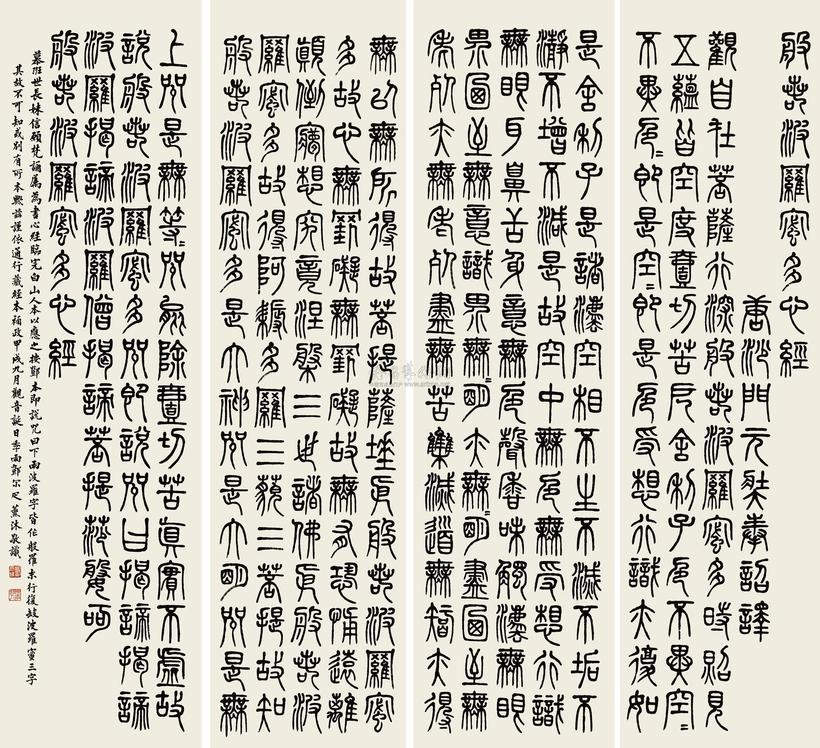 般若波羅蜜多心經
唐沙門元奘奉詔譯
觀自在菩薩行深般若波羅蜜多時照見
五蘊皆空度壹切苦厄舍利子色不異空〻
不異色〻即是空〻即是色受想行識亦復如
是舍利子是諸法空相不生不滅不垢不
瀞不增不減是故空中無色無受想行識
無眼耳鼻舌身意無色聲香味觸灋無眼
界乃至無意識界無〻明亦無〻明盡乃至無
老死亦無老死盡無苦集滅道無智亦得
無以無所得故菩提薩埵依般若波羅蜜
多故心無罣礙無罣礙故無有恐怖遠離
顛倒夢想究竟涅槃三世諸佛依般若波
羅蜜多故得阿耨多羅三藐三菩提故知
般若波羅蜜多是大神咒是大明咒是無
上咒是無等〻咒能除壹切苦真實不虛故
說般若波羅蜜多咒即說咒曰揭諦揭諦
波羅揭諦波羅僧揭諦菩提薩婆訶
般若波羅蜜多心經
慕班世長妹信願梵誦屬為書心經臨完白山人本以應之按鄭本即說咒曰下兩波羅字皆作般羅末行復敓波羅蜜三字
其故不可知或別有所本歟茲謹依通行藏經本補政甲戌九月觀音誕日季雨鄧尔疋薰沐敬識